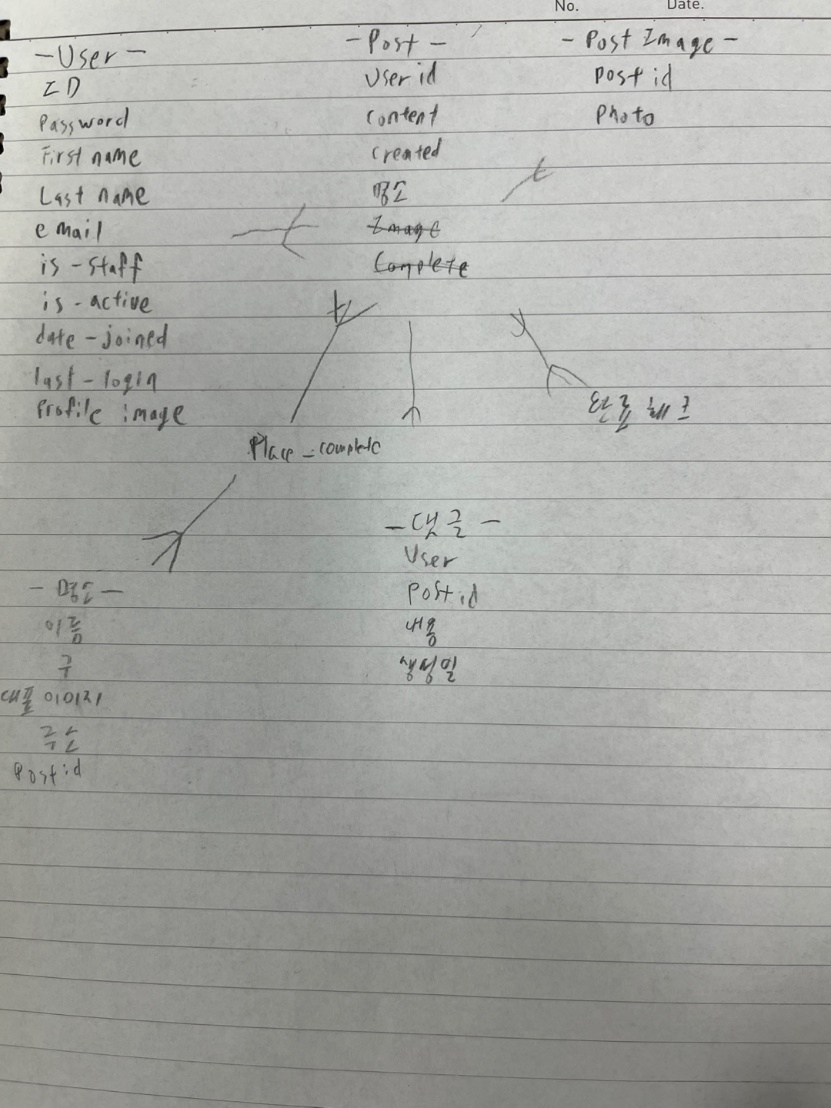 No. Date.
- User -
ID
Password
First name
Last name
email
is-staff
is-active
date-joined
last-login
Profile image
- Post -
User id
content
created
명소
Image
Complete
- Post Image -
Post id
Photo
완료 체크
Place_complete
- 댓글 -
User
Post id
내용
생성일
- 명소 -
이름
구
대표 이미지
주소
Post id